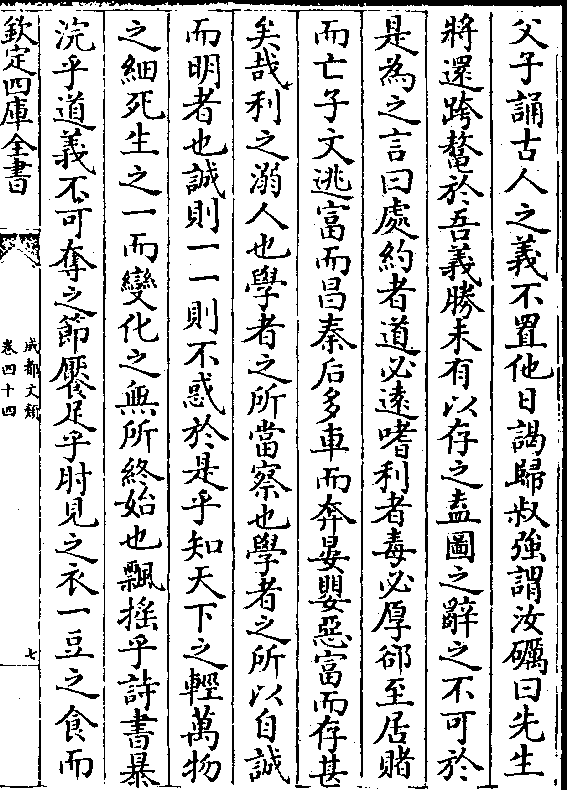 父子誦古人之義不置他日謁歸叔強謂汝礪曰先生
將還跨鼇於吾義勝未有以存之盍圖之辭之不可於
是為之言曰處約者道必逺嗜利者毒必厚郤至居賂
而亡子文逃富而昌秦后多車而奔晏嬰惡富而存甚
矣哉利之溺人也學者之所當察也學者之所以自誠
而明者也誠則一一則不惑於是乎知天下之輕萬物
之細死生之一而變化之無所終始也飄揺乎詩書暴
浣乎道義不可奪之節饜足乎肘見之衣一豆之食而
欽定四庫全書
成都文類
卷四十四
七